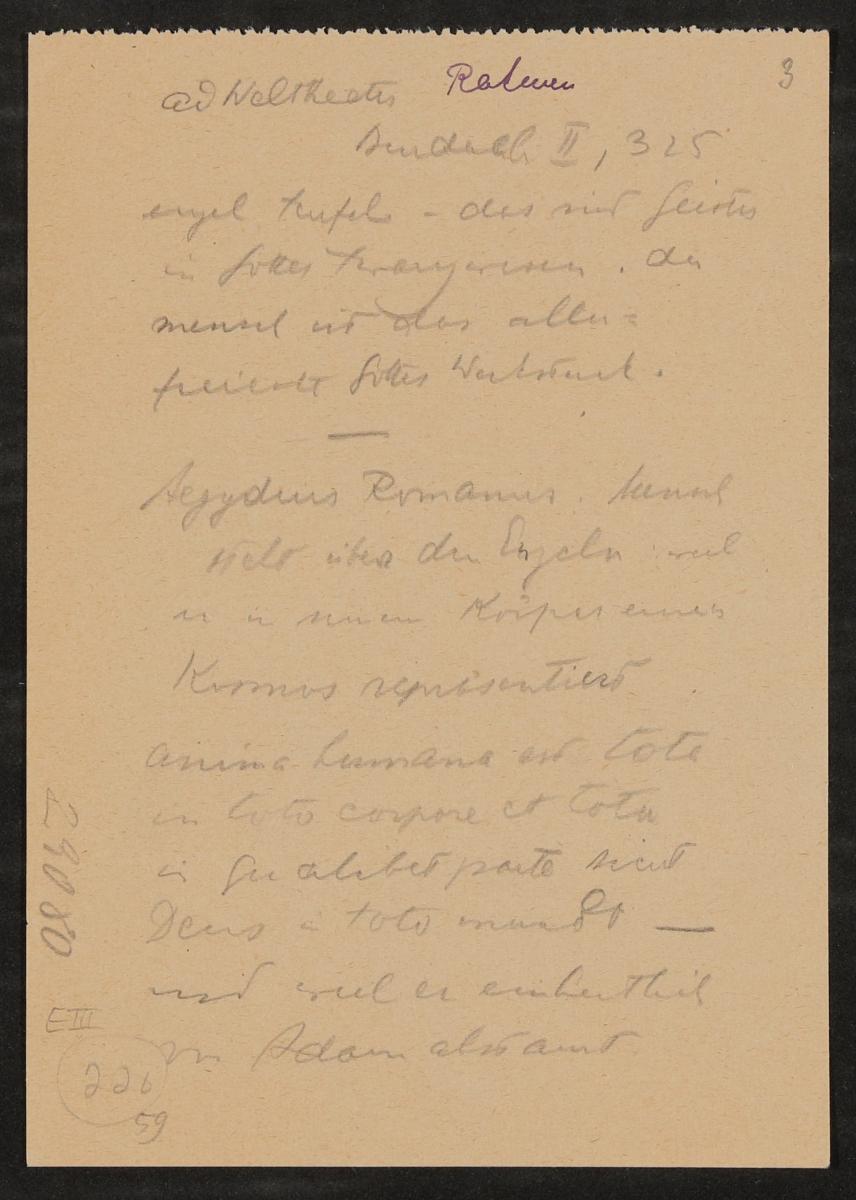 ad Welttheater Rahmen 3
Burdach II, 325
engel teufel – das sind Geister
in Gottes Zwangwesen. der
mensch ist das aller=
freieste Gottes Werkstück.
—
Aegydius Romanus. Mensch
steht über den Engeln weil
er in seinem Körper einen
Kosmos repräsentiert
anima humana est tota
in toto corpore et tota
in qualibet parte sicut
Deus in toto mundo —
und weil er einheitlich
von Adam abstamt.
29080
E III
226
59